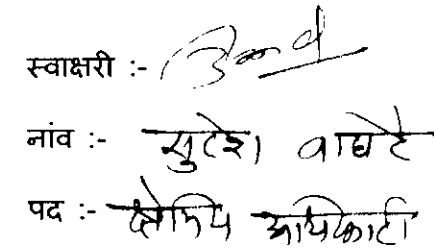 स्वाक्षरी :-
नांव :- सुरेश वाघरे
पद :- क्षेत्रिय अधिकारी